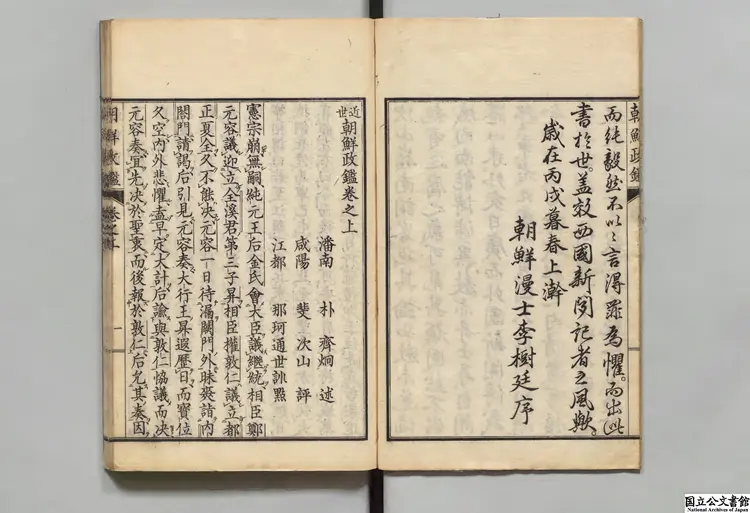 朝鮮政鑑
而純毅然不以〻言得罪為懼。而出此
書於世。蓋效西國新聞記者之風歟。
歲在丙戌暮春上澣
朝鮮漫士李樹廷序
近世朝鮮政鑑卷之上
潘南 朴齊炯 述
咸陽 斐次山 評
江都 那珂通世 訓點
憲宗崩無嗣純元王后金氏會大臣議繼統相臣鄭
元容議迎立全溪君第三子昇相臣權敦仁議立都
正夏全久不能決元容一日待漏闕門外昧爽詣內
閤門請謁后引見元容奏大行王昇遐歷日而寶位
久空內外悲懼盍早定大計后諭與敦仁協議而決
元容奏宜先決於聖衷而後報於敦仁后允其奏因
朝鮮政鑑 卷之上 一
国立公文書館
National Archives of Japan